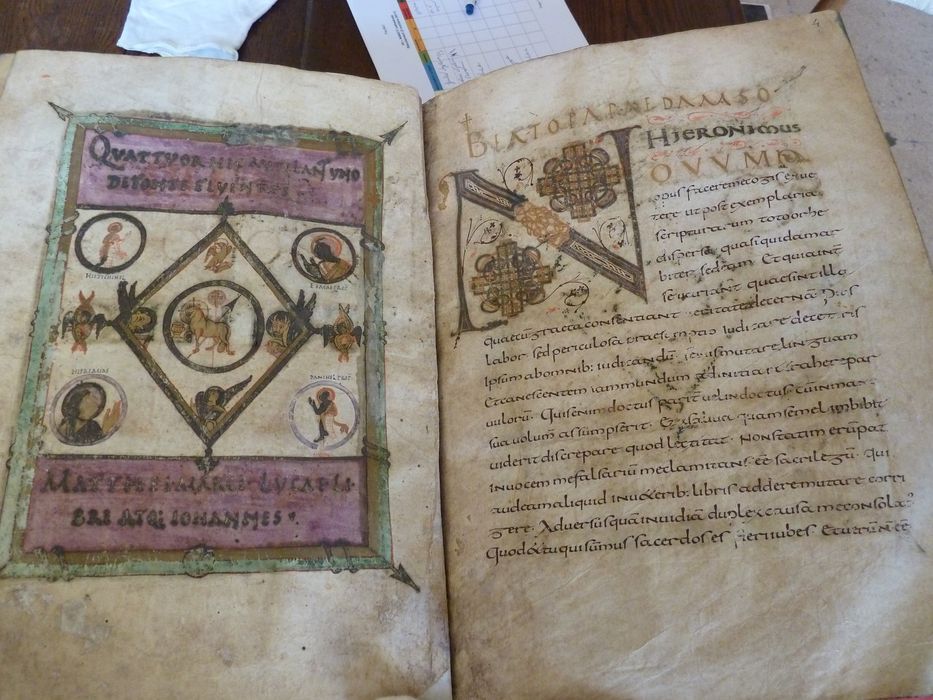 QUATTUOR HIC RUTILANT UNO
DE FONTE FLUENTES
DANIHEL PROF
MATTHEI MARCI LUCAE LI
BRI ATQ; IOHANNES
BEATO PAPAE DAMASO
HIERONIMUS
NOVUM
opus facere me cogis ex ve
tere ut post exemplaria
scripturarum toto orbe
dispersa quasi quidam ar
biter sedeam Et quia int
se variant quae sint illa
quae cum graeca consentiant veritate decernam Pius
labor sed periculosa praesumptio Iudicare de ceteris
Ipsum ab omnib; iudicandum senis mutare linguam
Et canescentem iam mundum ad initia retrahere par
vulorum Quis enim doctus pariter vel indoctus cum in ma
sua volumen assumpserit Et saliva quam semel imbibit
viderit discrepare quod lectitat Non statim erumpat
in vocem me falsarium me clamitans esse sacrilegum Qui
audeam aliquid in veterib; libris addere mutare corri
gere Adversus quam invidiam duplex causa me consola
Quod et tu qui summus sacerdos es fieri iubes Et verum ee